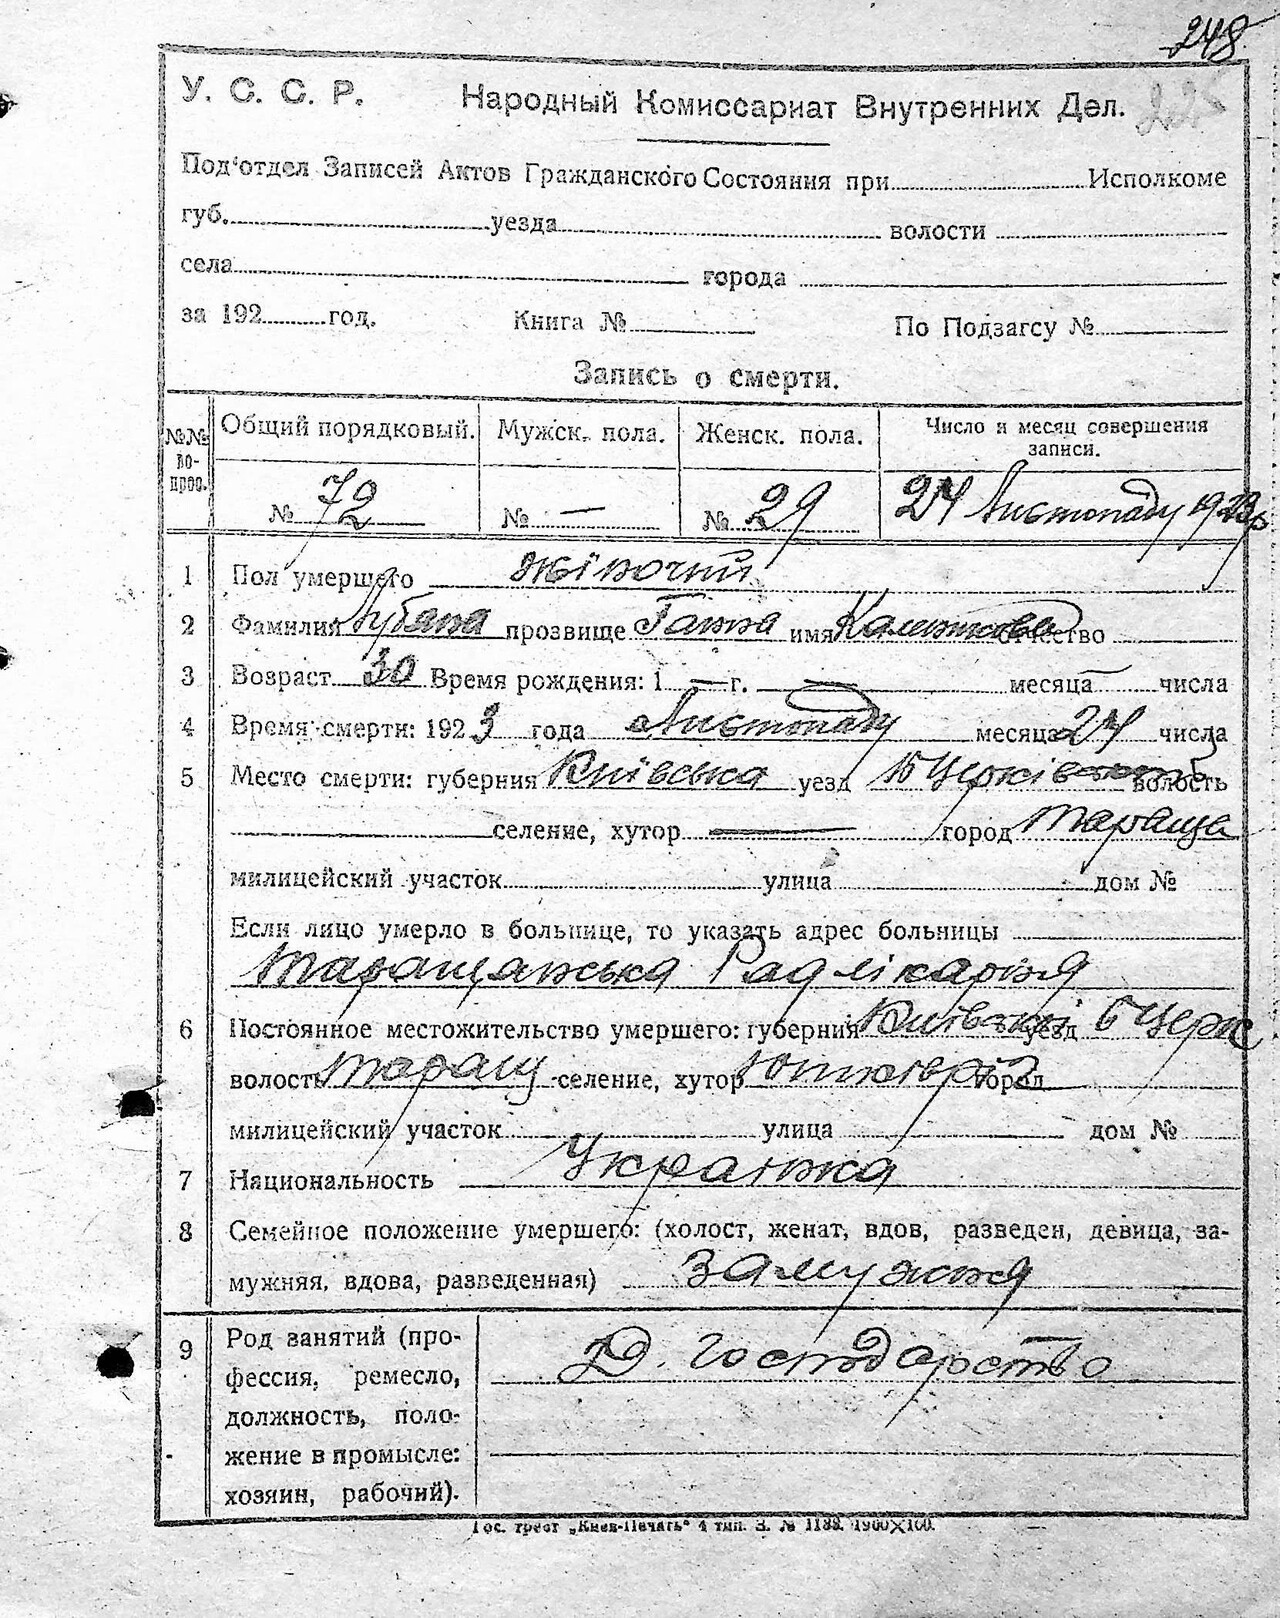 248
225
У. С. С. Р. Народный Комиссариат Внутренних Дел.
Под‘отдел Записей Актов Гражданского Состояния при Исполкоме
губ. уезда волости
села города
за 192 год. Книга № По Подзагсу №
Запись о смерти.
№№ во-прос. Общий порядковый. Мужск. пола. Женск. пола. Число и месяц совершения записи.
№ 72 № — № 29 24 Листопаду 1923р
1 Пол умершего жіночий
2 Фамилия прозвище Ганна имя отчество
3 Возраст 30 Время рождения: 1 — г. — месяца числа
4 Время смерти: 1923 года Листопаду месяца 24 числа
5 Место смерти: губерния Київська уезд Б Церківск волость
селение, хутор — город Тараща
милицейский участок улица дом №
Если лицо умерло в больнице, то указать адрес больницы
Таращанська Рад лікарня
6 Постоянное местожительство умершего: губерния Київської уезд Б Церк
волость Таращ селение, хутор город
милицейский участок улица дом №
7 Национальность Українка
8 Семейное положение умершего: (холост, женат, вдов, разведен, девица, за-
мужняя, вдова, разведенная) замужня
9 Род занятий (про-
фессия, ремесло,
должность, поло-
жение в промысле:
хозяин, рабочий).
Д. господарство
Гос. трест „Киев-Печать“ 4 тип. З. № 1188. 1900×100.